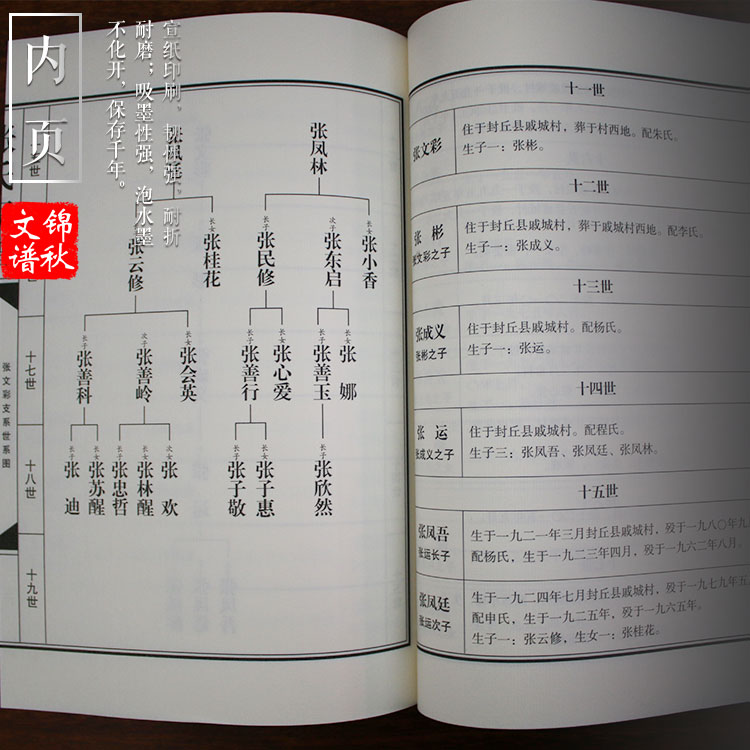 内页
宣纸印刷，韧性强，耐折
耐磨；吸墨性强，泡水墨
不化开，保存千年。
锦秋
文谱
张凤林
长女
张桂花
张云修
长子
张民修
次子
张东启
长女
张小香
十七世
长子
张善科
次子
张善岭
长女
张会英
长子
张善行
长女
张心爱
长子
张善玉
长女
张娜
张文彩支系世系图
十八世
长子
张迪
长女
张苏醒
长子
张忠哲
长女
张林醒
次女
张欢
长子
张子敬
长女
张子惠
长子
张欣然
十九世
十一世
张文彩
住于封丘县戚城村，葬于村西地。配朱氏。
生子一：张彬。
十二世
张彬
张文彩之子
住于封丘县戚城村，葬于戚城村西地。配李氏。
生子一：张成义。
十三世
张成义
张彬之子
住于封丘县戚城村。配杨氏。
生子一：张运。
十四世
张运
张成义之子
住于封丘县戚城村。配程氏。
生子三：张凤吾、张凤廷、张凤林。
十五世
张凤吾
张运长子
生于一九二一年三月封丘县戚城村，殁于一九八〇年九
配杨氏，生于一九二三年四月，殁于一九六二年八月。
张凤廷
张运次子
生于一九二四年七月封丘县戚城村，殁于一九七九年五
配申氏，生于一九二五年，殁于一九六五年。
生子一：张云修，生女一：张桂花。